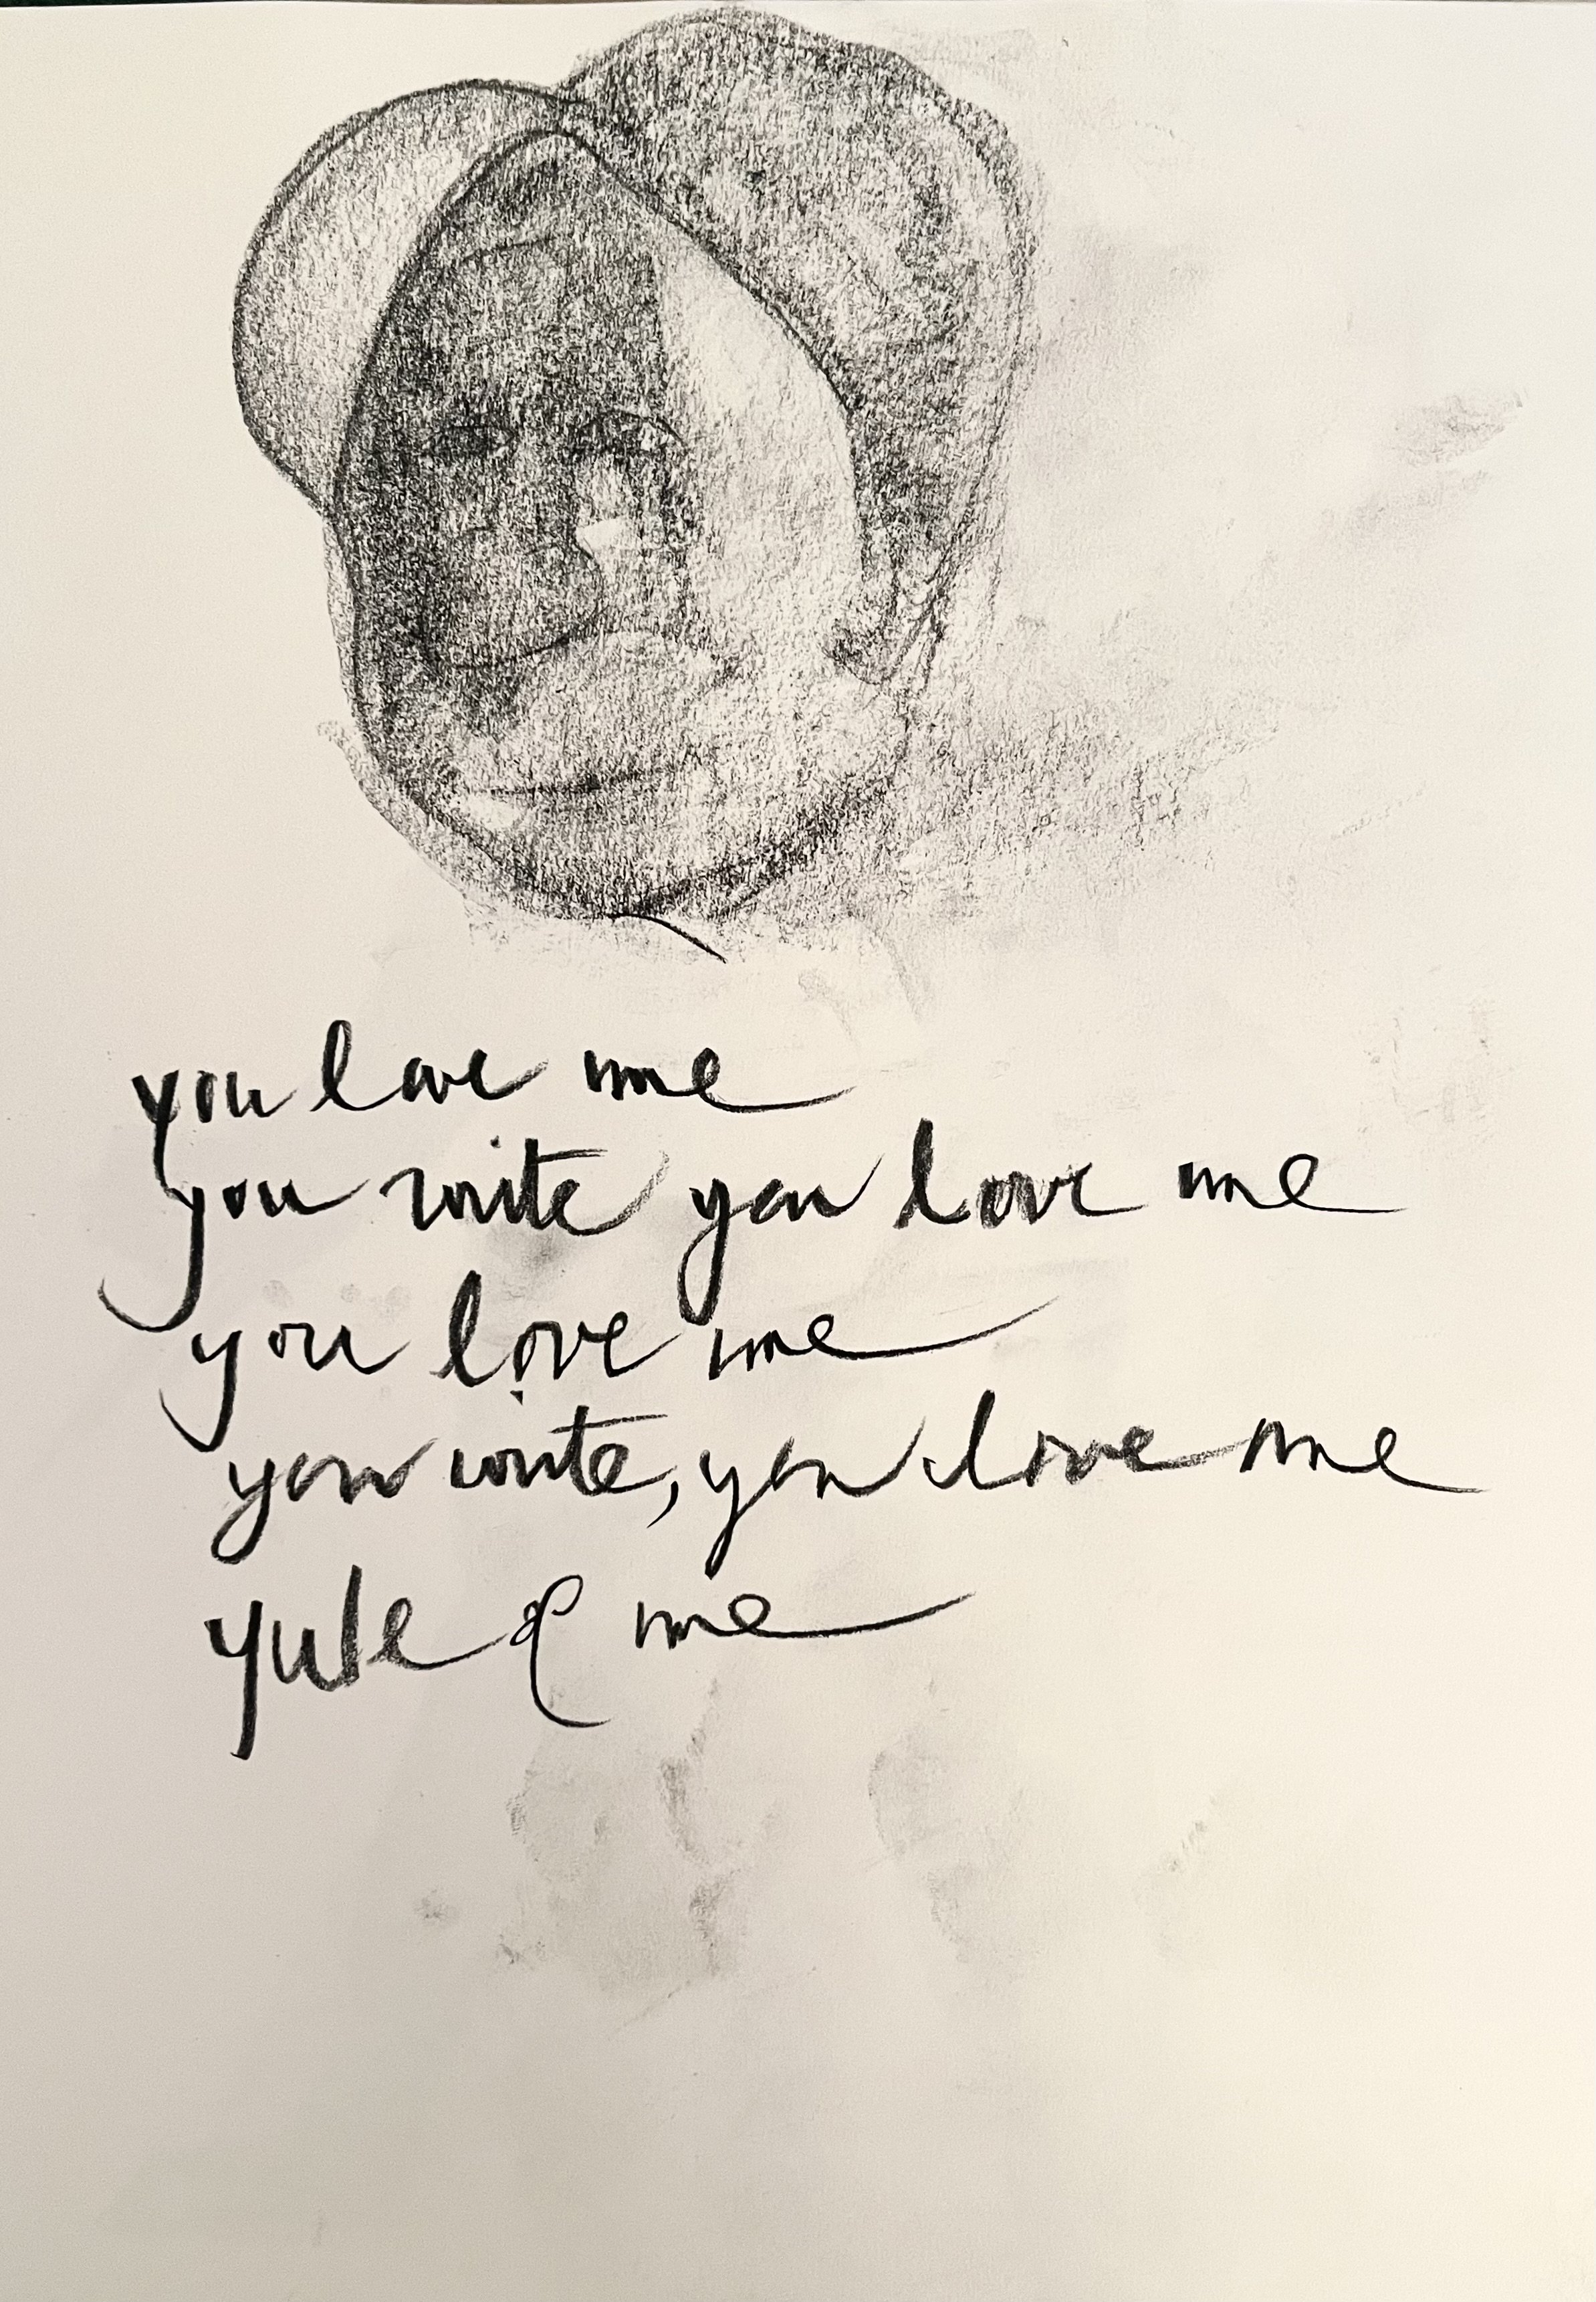 you love me
you write you love me
you love me
you write, you love me
yule & me